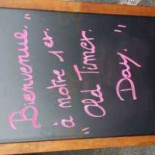 Bienvenue.
à notre 1 er.
"Old Timer.
Day."